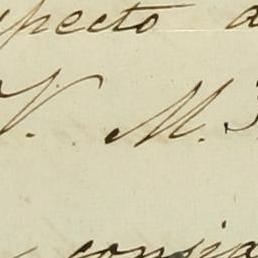 specto a
V. M.
consia